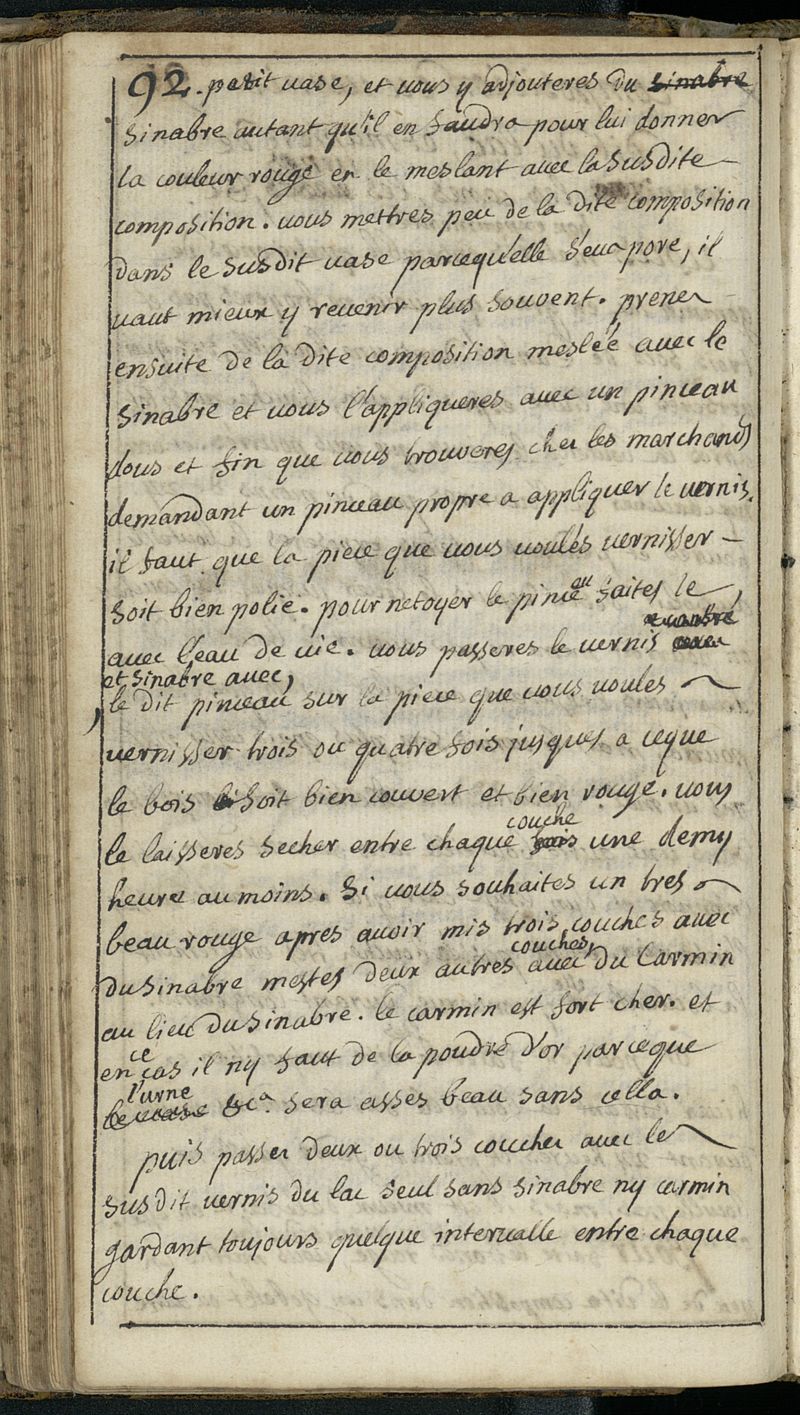 92. petit vase, et vous y adjouteres du sinabre
sinabre autant qu'il en faudra pour lui donner
la couleur rouge en le meslant avec la susdite
composition. vous mettres peu de la dite composition
dans le susdit vase parcequ'elle s'evapore, il
vaut mieux y revenir plus souvent. prenez
ensuite de la dite composition meslée avec le
sinabre et vous l'appliqueres avec un pinceau
dous et fin que vous trouveres chez les marchands
demandant un pinceau propre a appliquer le vernis.
il faut que la piece que vous voulés vernisser
soit bien polie. pour netoyer le pinceau faites le,
avec l'eau de vie. vous passeres le vernis
et sinabre avec,
le dit pinceau sur la piece que vous voules
vernisser trois ou quatre fois jusques a ceque
le bois soit bien couvert et bien rouge. vous
couche
le laisseres secher entre chaque fois une demy
heure au moins. Si vous souhaites un tres
beau rouge apres avoir mis trois couches avec
couches,
du sinabre mettes deux autres avec du Carmin
au lieu du sinabre. le carmin est fort cher. et
ce
en cas il ny faut de la poudre d'or parceque
l'urne
le vase &ca. sera asses beau sans cella.
puis passez deux ou trois couches avec le
susdit vernis du lac seul sans sinabre ny carmin
gardant toujours quelque intervalle entre chaque
couche.